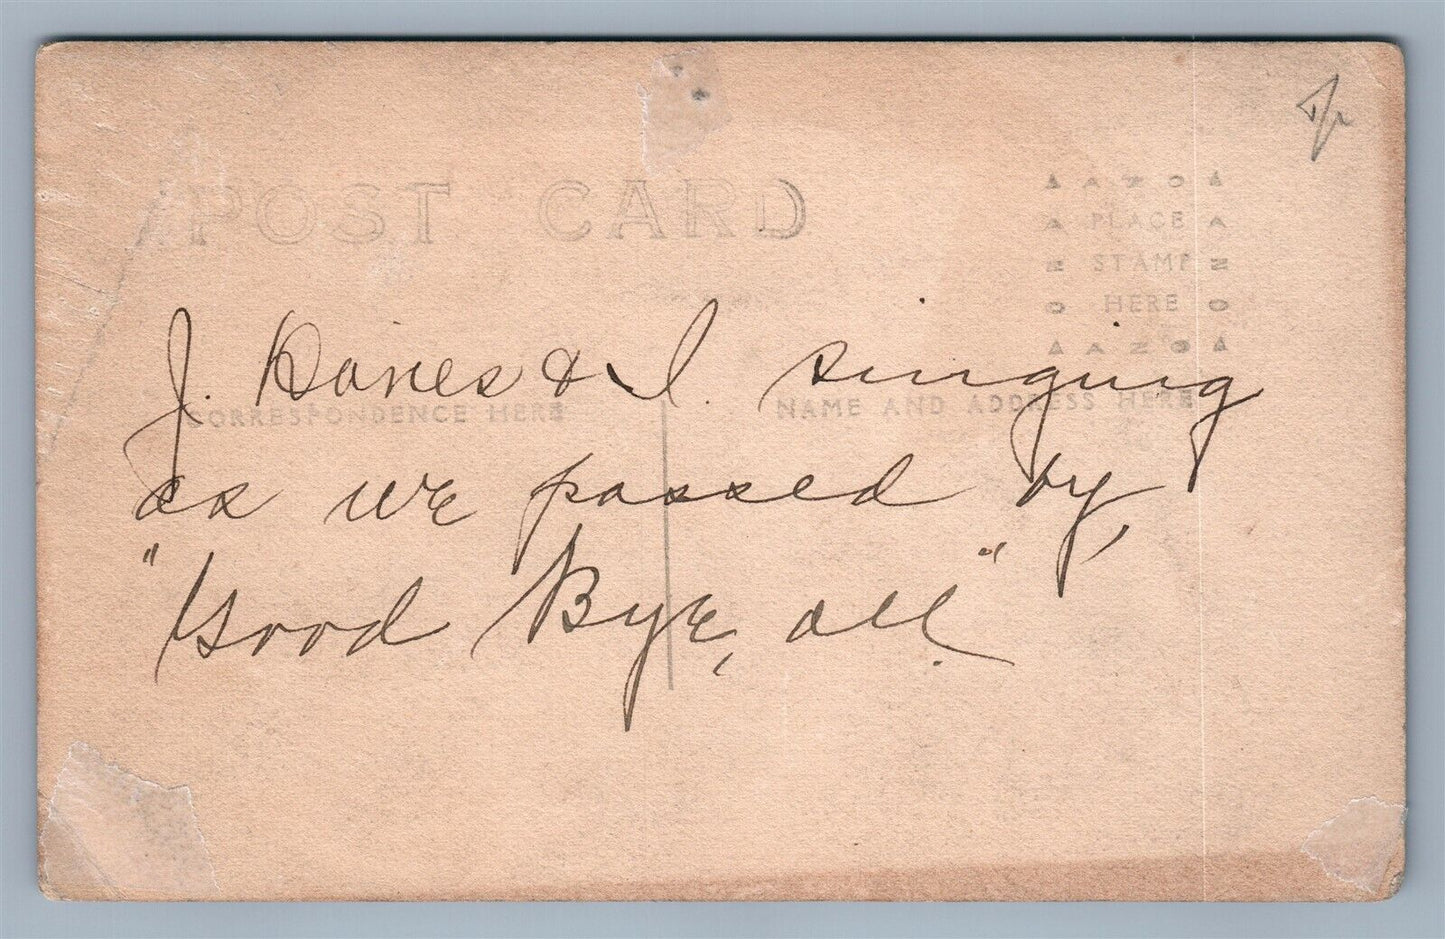 POST CARD
AZO
PLACE
STAMP
HERE
AZO
CORRESPONDENCE HERE
NAME AND ADDRESS HERE
J. Davies & I. singing
as we passed by,
"Good Bye, all."